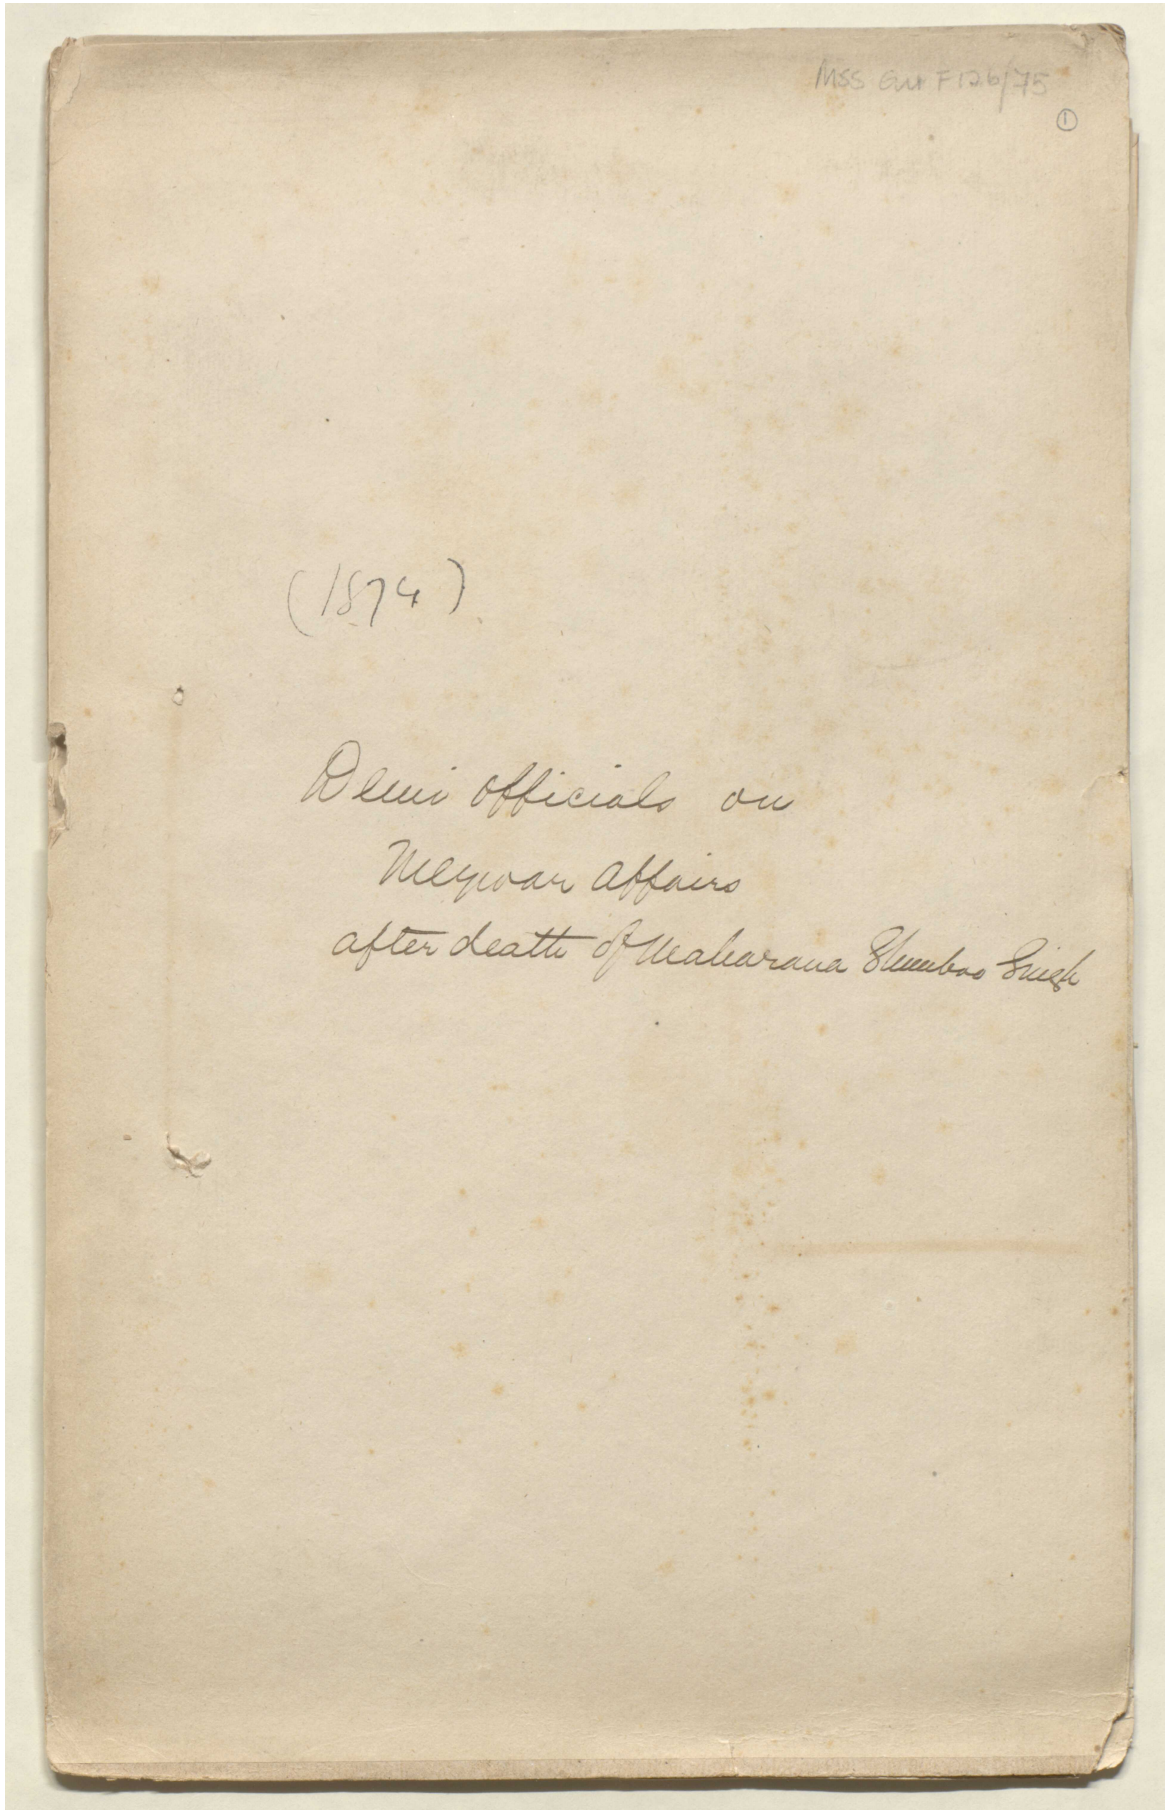 MSS Eur F126/75
1
(1874)
Demi officials on
Meywar affairs
after death of Maharana Shumboo Singh